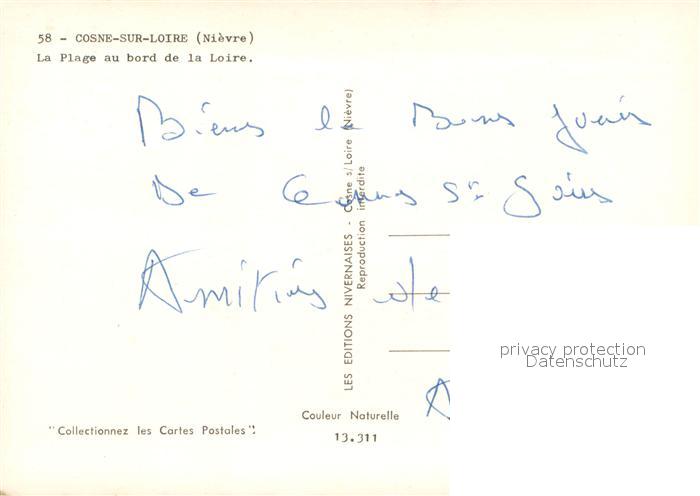 58 - COSNE-SUR-LOIRE (Nièvre)
La Plage au bord de la Loire.
Biens le Bons
De Cosnes S/
Amitiés de
A
LES EDITIONS NIVERNAISES - Cosne s/Loire (Nièvre)
Reproduction interdite
privacy protection
Datenschutz
Couleur Naturelle
13.311
"Collectionnez les Cartes Postales".